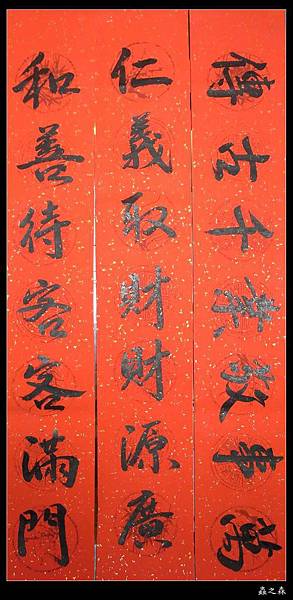 傳古千業敬事萬
仁義取財財源廣
和善待客客滿門
蟲之森